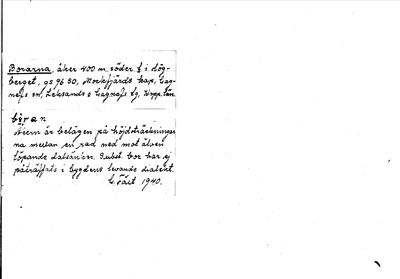 Borarna, åker 400 m. söder f i Hög-
berget, gs 96 30, Mockfjärds kap, Gag-
nefs sn, Leksands o Gagnefs tg, Kopp. län.
båran
Åkern är belägen på höjdsträckningar
na mellan en rad ned mot älven
löpande dalsänkn. Subst. bor har ej
påträffats i bygdens levande dialekt.
1940.